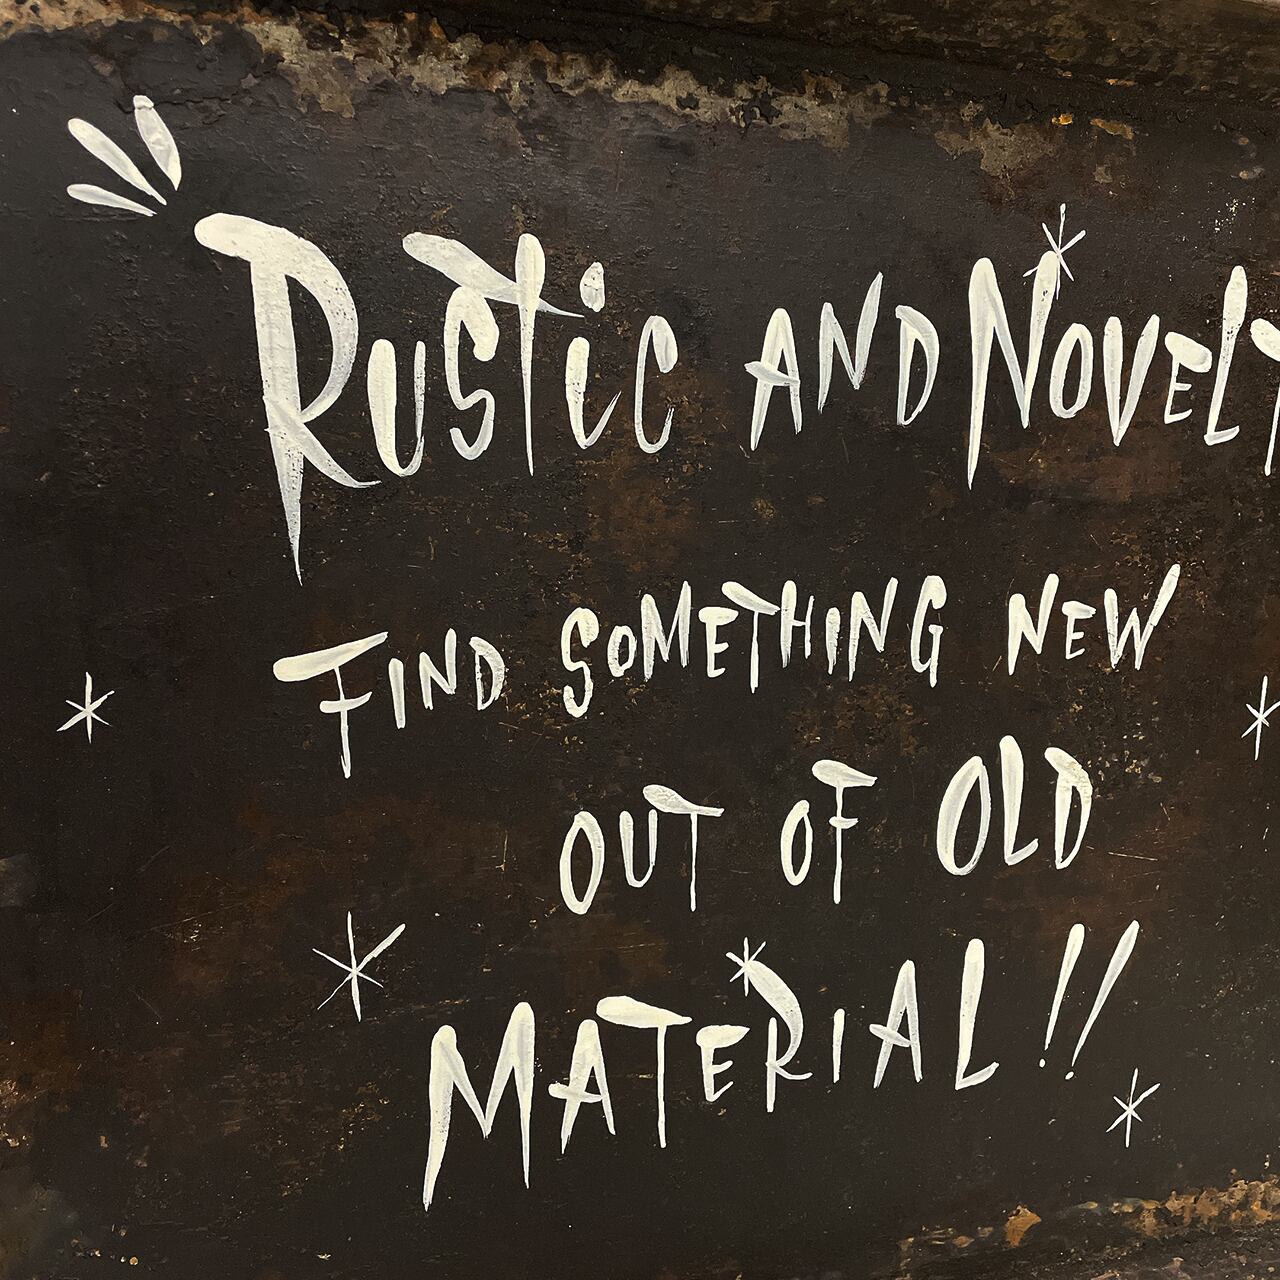 Rustic AND NOVELT
FIND SOMETHING NEW
OUT OF OLD
MATERIAL!!